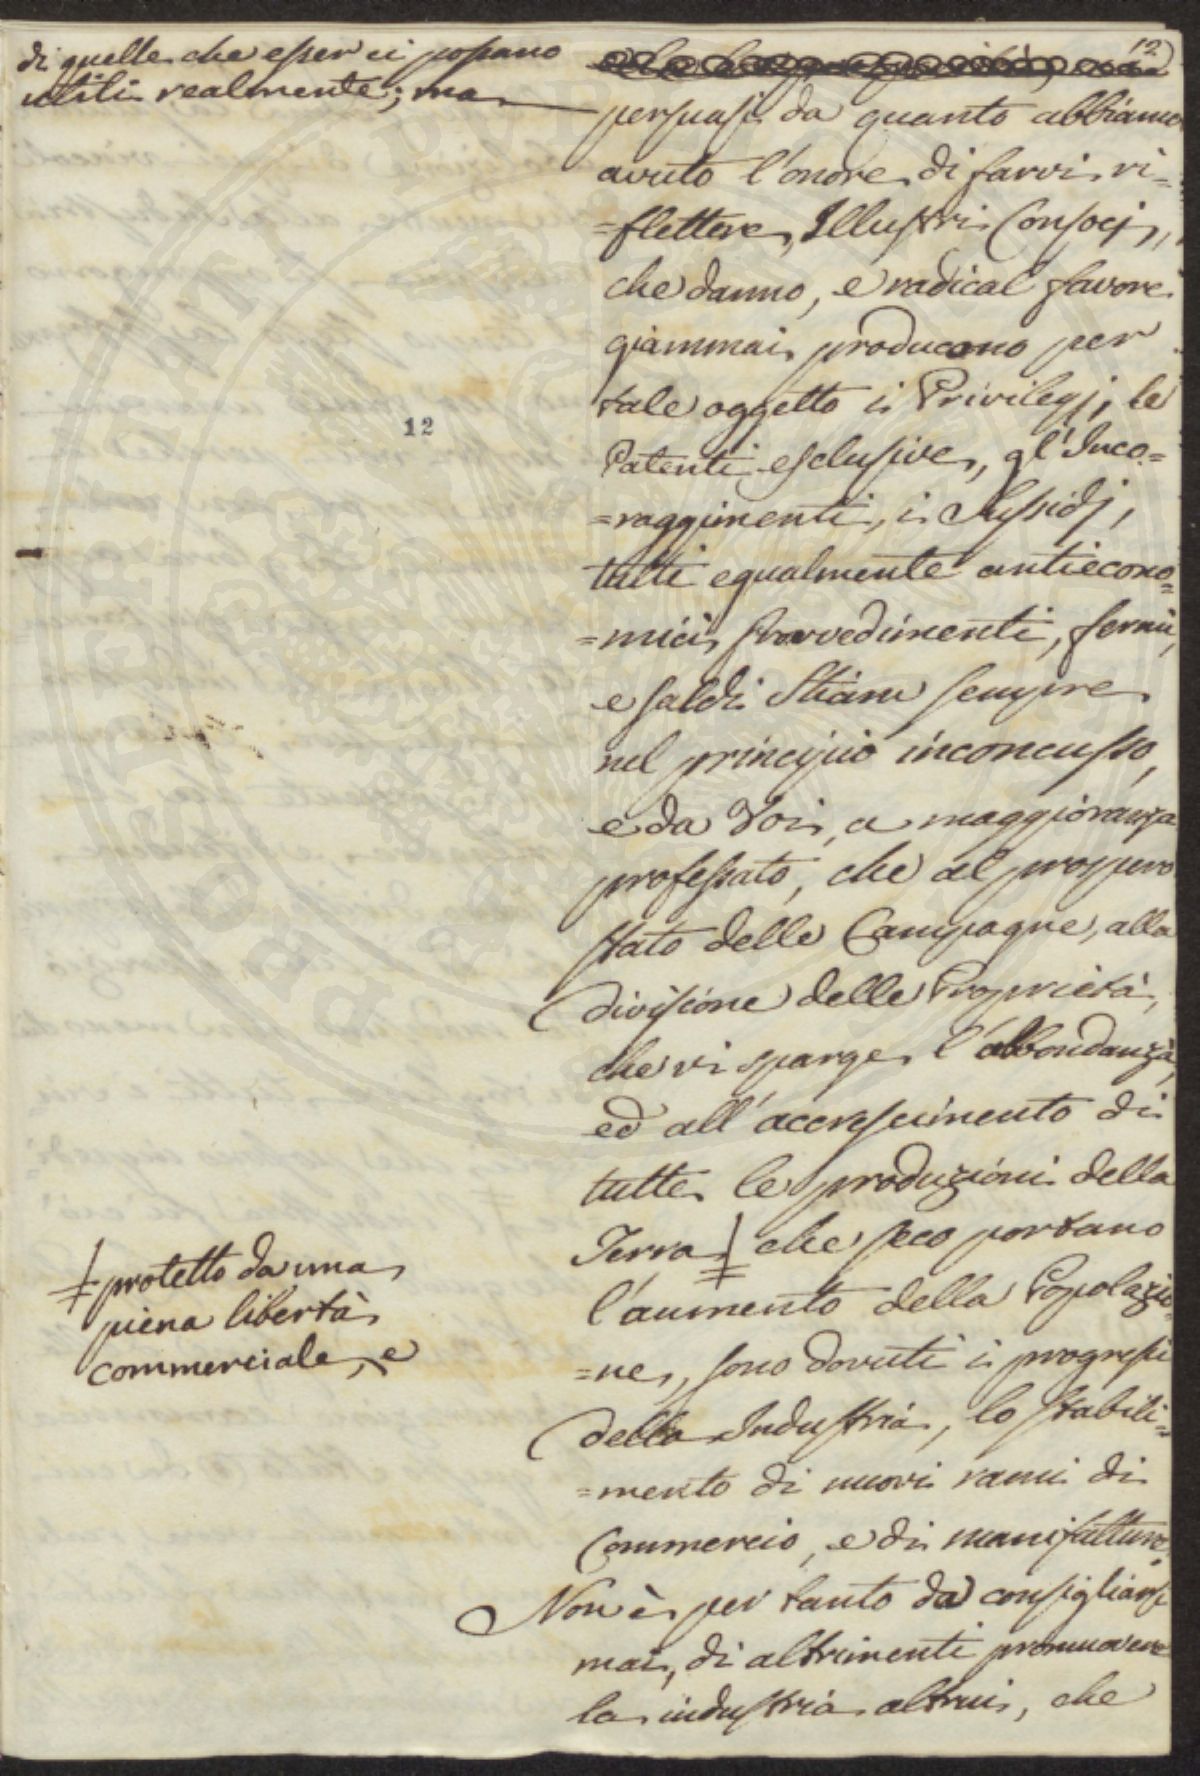 12
di quelle che esser ci possano
utili realmente; ma
persuasi da quanto abbiamo
avuto l'onore di farvi ri=
=flettere, Illustri Consocj,
che danno, e radical favore
giammai producono per
tale oggetto i Privilegj, le
Patenti esclusive, gl'Inco=
=raggimenti, i Sussidj,
tutti egualmente antiecono=
=mici provvedimenti, fermi,
e saldi Stiam sempre
nel principio inconcusso,
e da Voi, a maggioranza
professato, che al prospero
stato delle Campagne, alla
divisione delle Proprietà,
che vi sparge l'abbondanza,
ed all'accrescimento di
tutte le produzioni della
Terra che seco portano
l'aumento della Popolazio=
=ne, sono dovuti i progressi
della Industria, lo stabili=
=mento di nuovi rami di
Commercio, e di manifatture.
Non è per tanto da consigliarsi
mai, di altrimenti promuovere
la industria altrui, che
12
protetto da una
piena libertà
commerciale, e
PROSPERITATI PUBLICAE